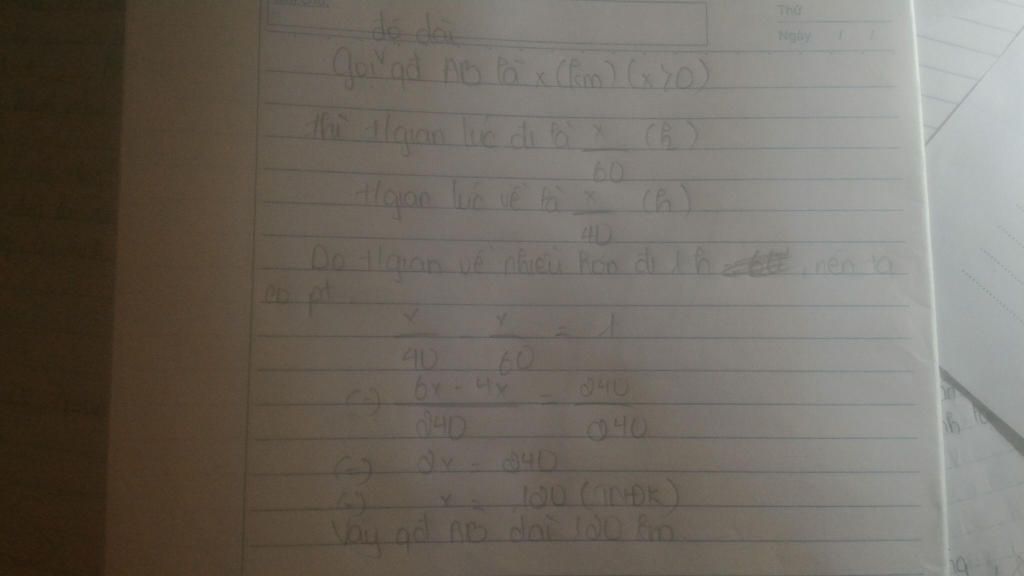 Thứ
Ngày / /
độ dài
Gọi qđ AB là x (km) (x>0)
thì t/gian lúc đi là x/60 (h)
t/gian lúc về là x/40 (h)
Do t/gian về nhiều hơn đi 1h , nên ta
có pt
x/40 - x/60 = 1
(=) 6x - 4x/240 = 240/240
(=) 2x = 240
(=) x = 120 (TMĐK)
Vậy qđ AB dài 120 km